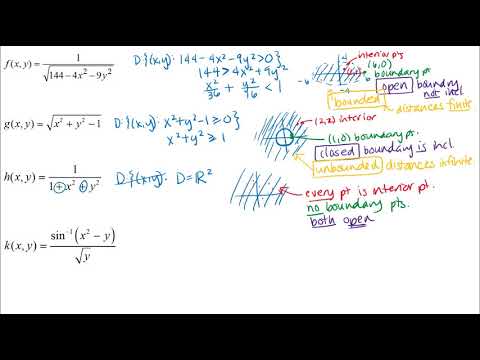 f(x, y) = 1/√(144 − 4x² − 9y²)
D: {(x,y): 144 − 4x² − 9y² > 0}
144 > 4x² + 9y²
x²/36 + y²/16 < 1
interior pts
(6,0)
boundary pt.
4
-6
6
-4
open boundary not incl
bounded distances finite
g(x, y) = √(x² + y² − 1)
D: {(x,y): x² + y² − 1 ≥ 0}
x² + y² ≥ 1
(2,2) interior
(1,0) boundary pt.
closed boundary is incl.
unbounded distances infinite
h(x, y) = 1/(1 + x² + y²)
D: {(x,y): D = ℝ²
every pt is interior pt.
no boundary pts.
both open
k(x, y) = sin⁻¹(x² − y)/√y